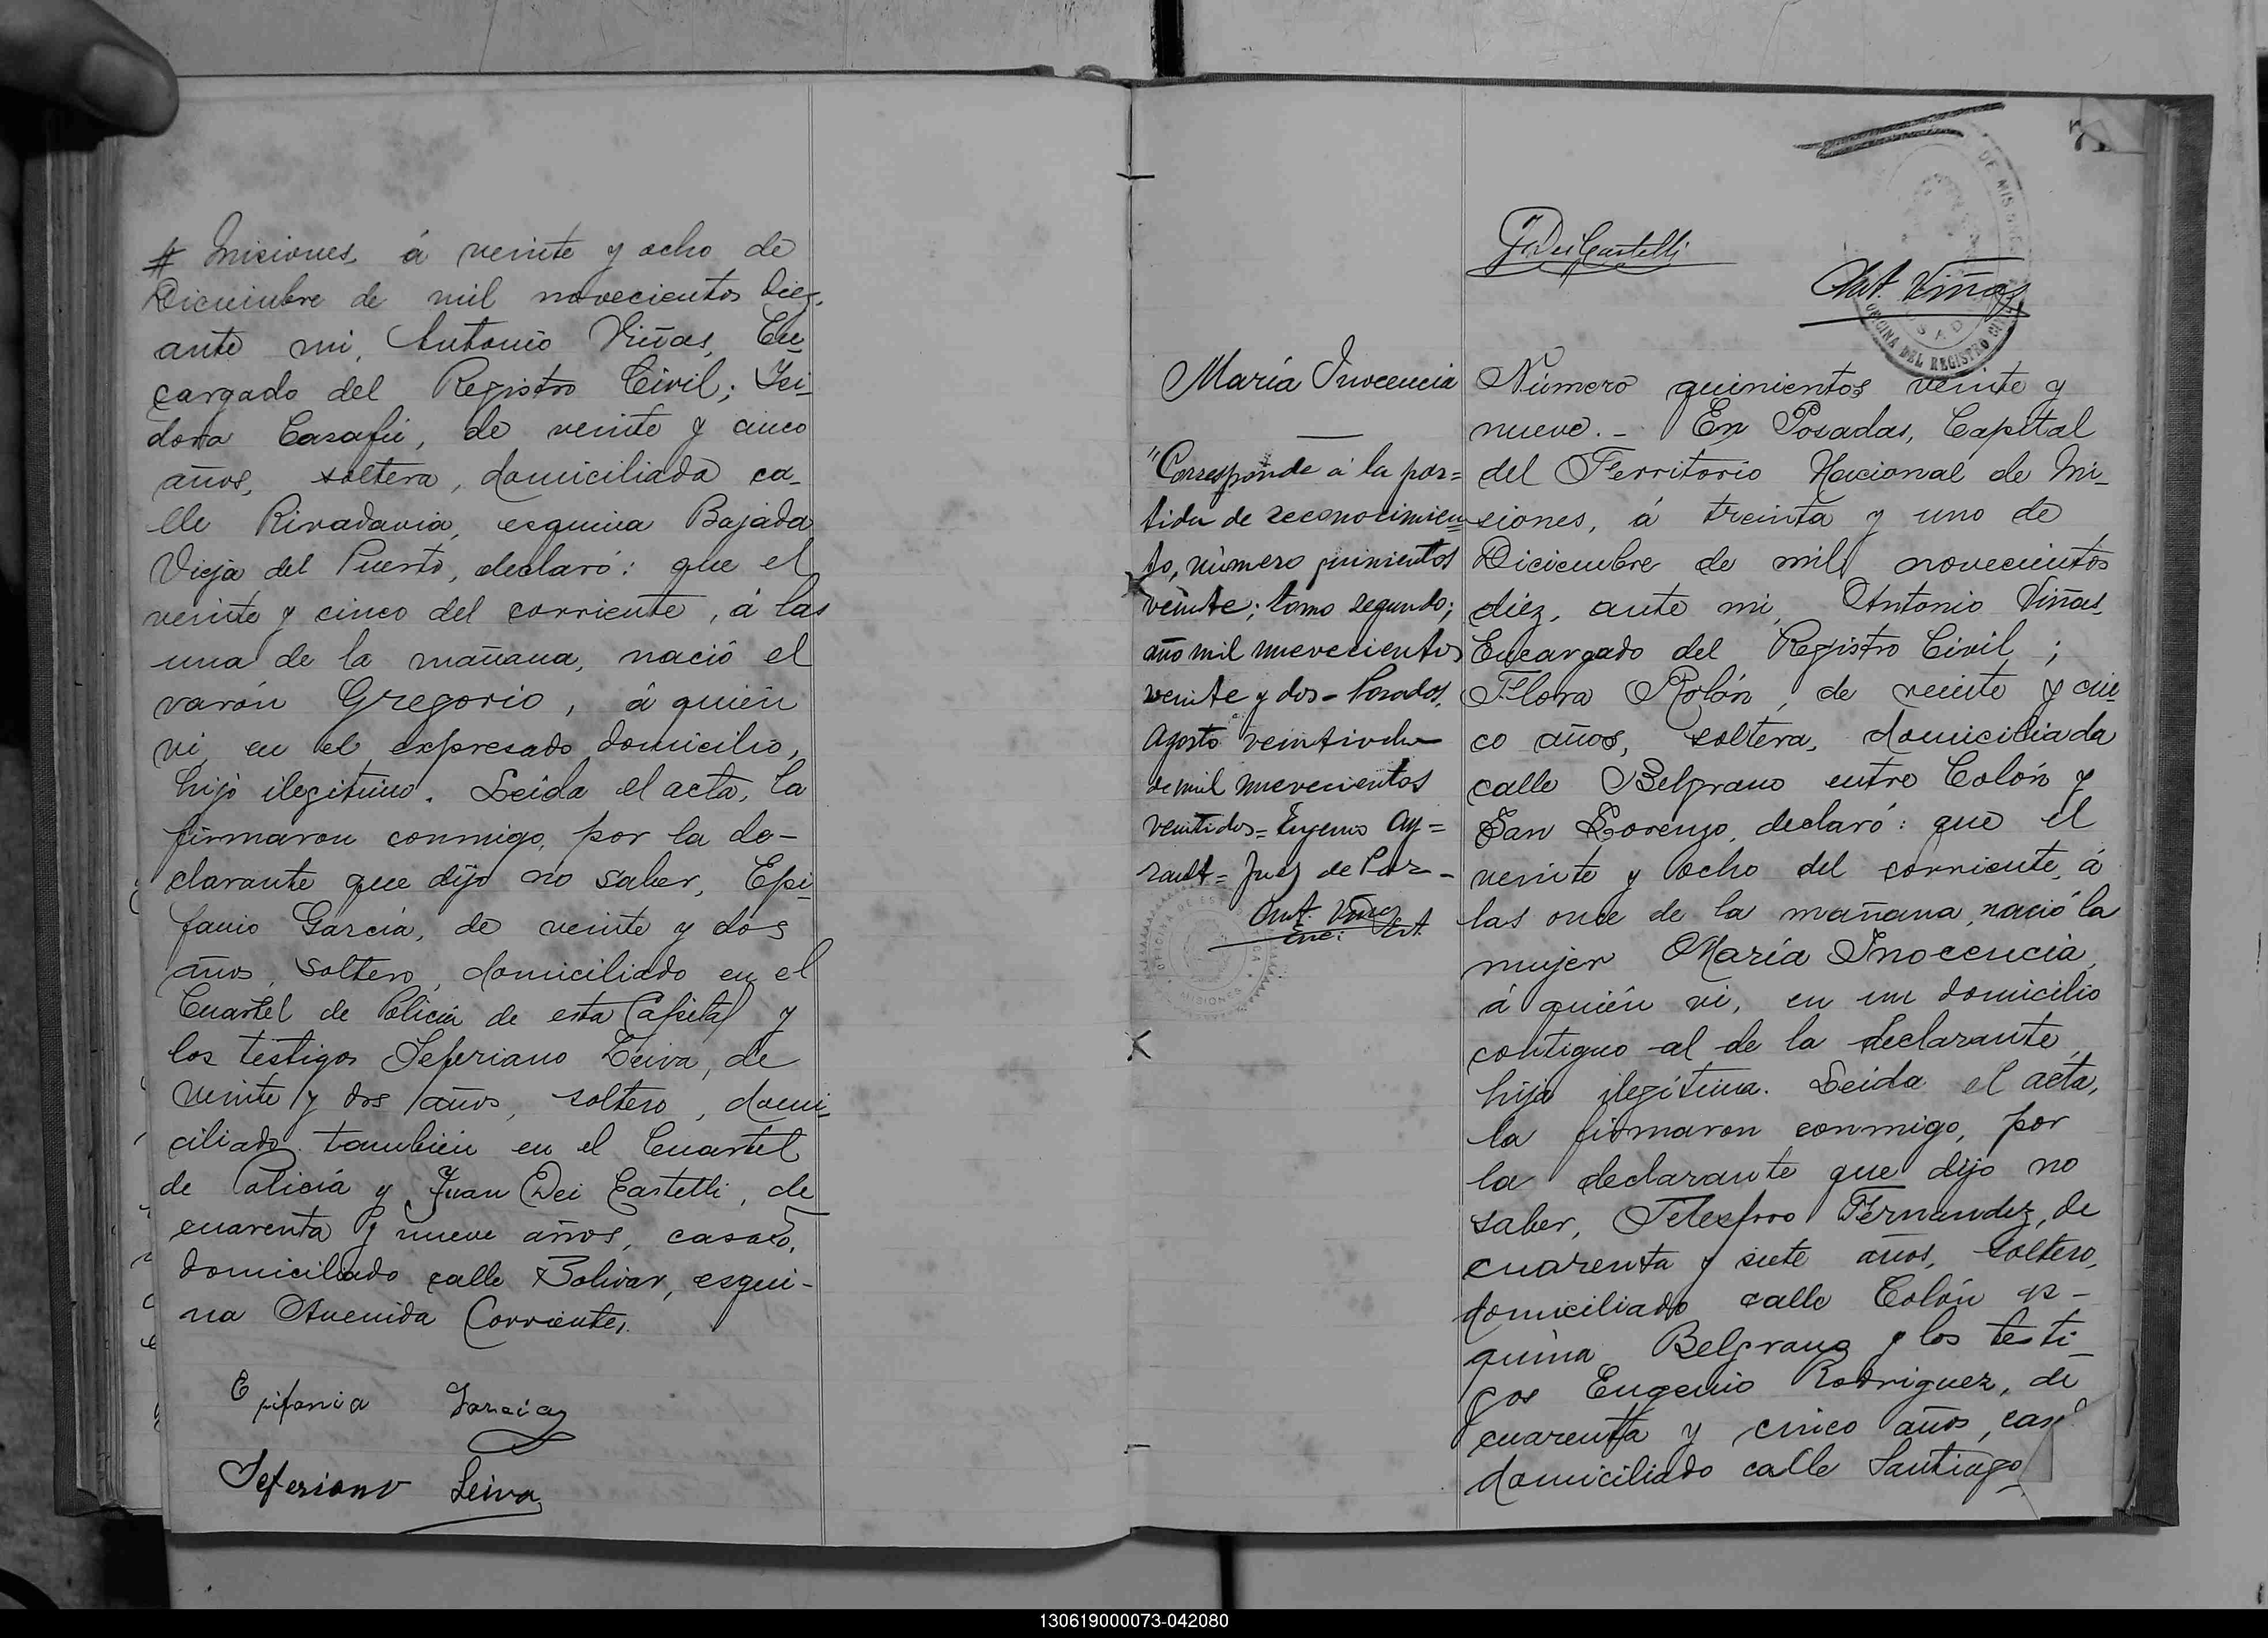 # Misiones, á veinte y ocho de
Diciembre de mil novecientos diez,
ante mi, Antonio Viñas, En-
cargado del Registro Civil; Isi-
dora Casafú, de veinte y cinco
años, soltera, domiciliada ca-
lle Rivadavia, esquina Bajada
Vieja del Puerto, declaró: que el
veinte y cinco del corriente, á las
una de la mañana, nació el
varón Gregorio, á quién
vi, en el expresado domicilio,
hijo ilegitimo. Leida el acta, la
firmaron conmigo, por la de-
clarante que dijo no saber, Epi-
fanio García, de veinte y dos
años, soltero, domiciliado en el
Cuartel de Policía de esta Capital y
los testigos Seferiano Leiva, de
veinte y dos años, soltero, domi-
ciliado también en el Cuartel
de Policía y Juan Dei Castelli, de
cuarenta y nueve años, casado,
domiciliado calle Bolivar, esqui-
na Avenida Corrientes.
Epifania Garcia
Seferiano Leiva
J. Dei Castelli
Ant. Viñas
OFICINA DEL REGISTRO CIVIL
María Inocencia
"Corresponde á la par=
tida de reconocimien=
to, número quinientos
veinte; tomo segundo;
año mil novecientos
veinte y dos = Posadas,
Agosto veintiocho
de mil novecientos
veintidos = Eugenio Ay=
rault = Juez de Paz -
Ant. Viñas
Enc: Est.
MISIONES
Número quinientos veinte y
nueve. - En Posadas, Capital
del Territorio Nacional de Mi-
siones, á treinta y uno de
Diciembre de mil novecientos
diéz, ante mi, Antonio Viñas,
Encargado del Registro Civil;
Flora Rolón, de veinte y cin-
co años, soltera, domiciliada
calle Belgrano entre Colón y
San Lorenzo, declaró: que el
veinte y ocho del corriente, á
las once de la mañana, nació la
mujer María Inocencia,
á quién vi, en un domicilio
contiguo al de la declarante,
hija ilegítima. Leida el acta,
la firmaron conmigo, por
la declarante que dijo no
saber, Telesforo Fernandez, de
cuarenta y siete años, soltero,
domiciliado calle Colón es-
quina Belgrano y los testi-
gos Eugenio Rodriguez, de
cuarenta y cinco años, casº
domiciliado calle Santiago
130619000073-042080